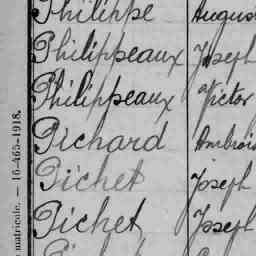 Philippe August
Philippeaux Joseph
Philippeaux Victor
Pichard Ambrois
Pichet Joseph
Pichet Joseph
matricule. — 16-465-1918.